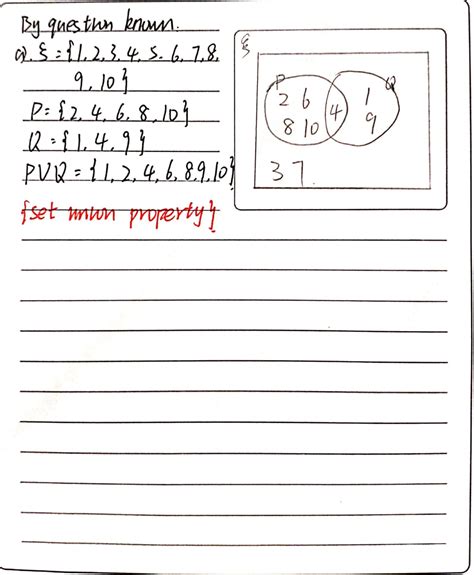 By question known.
a). ξ = {1, 2, 3, 4, 5, 6, 7, 8,
9, 10}
P = {2, 4, 6, 8, 10}
Q = {1, 4, 9}
PUQ = {1, 2, 4, 6, 8, 9, 10}
{set union property}
ξ
P Q
2 6 4 1
8 10 9
3 7